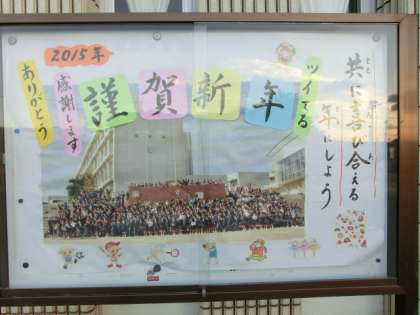 2015年
謹賀新年
ありがとう
感謝します
ツイてる
共に喜び合える
年にしよう